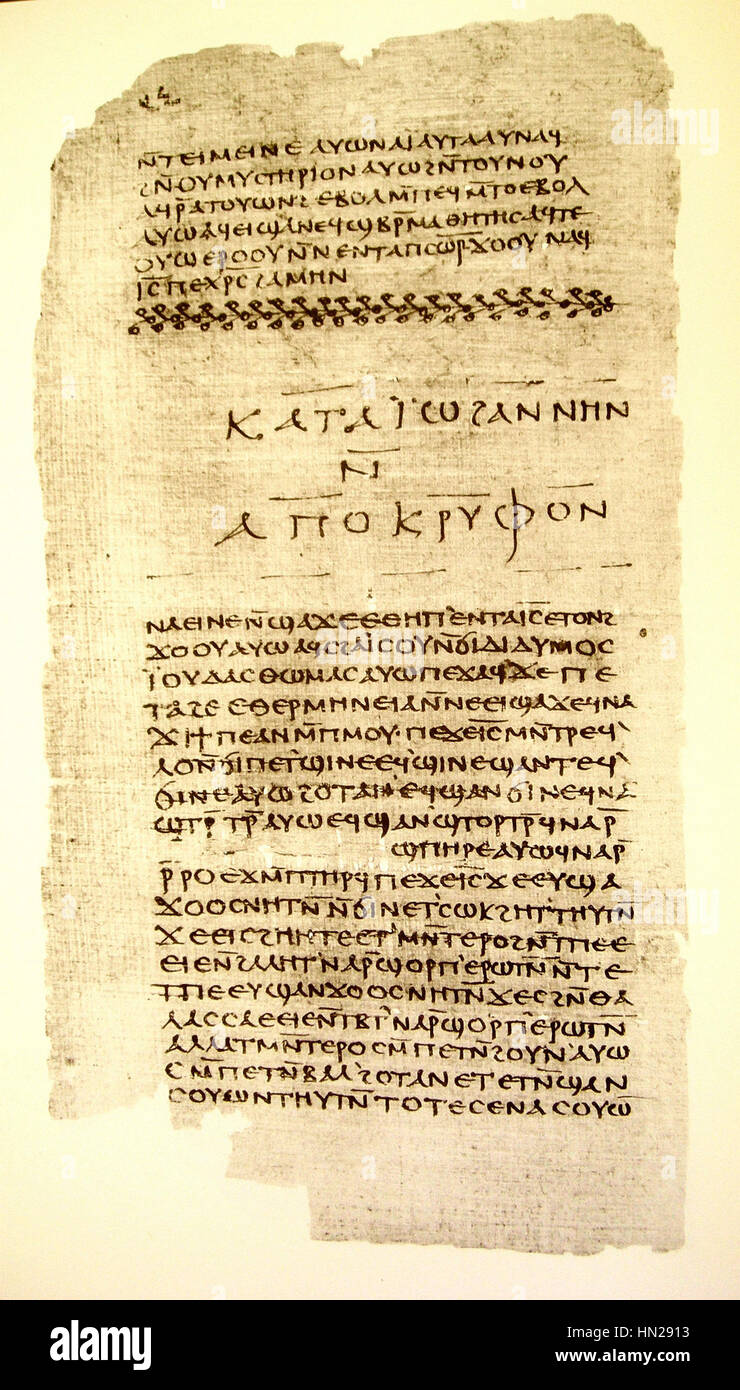 ⲛ̄ⲧⲉⲓⲙⲉⲓⲛⲉ ⲁⲩⲱ ⲛⲁⲓ ⲁⲩⲧⲁⲁⲩ ⲛⲁϥ
ϩⲛ̄ⲟⲩⲙⲩⲥⲧⲏⲣⲓⲟⲛ ⲁⲩⲱ ϩⲛ̄ⲧⲟⲩⲛⲟⲩ
ⲁϥⲣ̄ⲁⲧⲟⲩⲱⲛϩ ⲉⲃⲟⲗ ⲙ̄ⲡⲉϥⲙ̄ⲧⲟ ⲉⲃⲟⲗ
ⲁⲩⲱ ⲁϥⲉⲓ ϣⲁ ⲛⲉϥϣⲃⲣ̄ⲙⲁⲑⲏⲧⲏⲥ ⲁϥⲧⲉ
ⲟⲩⲱ ⲉⲣⲟⲟⲩ ⲛ̄ⲛⲉⲛⲧⲁⲡⲥⲱ̄ⲣ̄ ϫⲟⲟⲩ ⲛⲁϥ
ⲓ̄ⲥ̄ ⲡⲉⲭⲣ̄ⲥ̄ ϩⲁⲙⲏⲛ
ⲕⲁⲧⲁ ⲓⲱϩⲁⲛⲛⲏⲛ
ⲛ̄
ⲁⲡⲟⲕⲣⲩⲫⲟⲛ
ⲛⲁⲉⲓ ⲛⲉ ⲛ̄ϣⲁϫⲉ ⲉⲑⲏⲡ ⲉⲛⲧⲁⲓ̄ⲥ̄ ⲉⲧⲟⲛϩ
ϫⲟⲟⲩ ⲁⲩⲱ ⲁϥⲥϩⲁⲓⲥⲟⲩ ⲛ̄ϭⲓ ⲇⲓⲇⲩⲙⲟⲥ
ⲓ̈ⲟⲩⲇⲁⲥ ⲑⲱⲙⲁⲥ ⲁⲩⲱ ⲡⲉϫⲁϥ ϫⲉ ⲡⲉ
ⲧⲁϩⲉ ⲉⲑⲉⲣⲙⲏⲛⲉⲓⲁ ⲛ̄ⲛⲉⲉⲓϣⲁϫⲉ ϥⲛⲁ
ϫⲓϯⲡⲉ ⲁⲛ ⲙ̄ⲡⲙⲟⲩ· ⲡⲉϫⲉ ⲓ̄ⲥ̄ ⲙⲛ̄ⲧⲣⲉϥ
ⲗⲟ ⲛ̄ϭⲓ ⲡⲉⲧϣⲓⲛⲉ ⲉϥϣⲓⲛⲉ ϣⲁⲛⲧⲉϥ
ϭⲓⲛⲉ ⲁⲩⲱ ϩⲟⲧⲁⲛ ⲉϥϣⲁⲛϭⲓⲛⲉ ϥⲛⲁ
ϣⲧⲣ̄ⲧⲣ̄ ⲁⲩⲱ ⲉϥϣⲁⲛϣⲧⲟⲣⲧⲣ̄ ϥⲛⲁⲣ̄
ϣⲡⲏⲣⲉ ⲁⲩⲱ ϥⲛⲁⲣ̄
ⲣ̄ⲣⲟ ⲉϫⲙ̄ ⲡⲧⲏⲣϥ ⲡⲉϫⲉ ⲓ̄ⲥ̄ ϫⲉ ⲉⲩϣⲁ
ϫⲟⲟⲥ ⲛⲏⲧⲛ̄ ⲛ̄ϭⲓ ⲛⲉⲧⲥⲱⲕ ϩⲏⲧⲧⲏⲩⲧⲛ̄
ϫⲉ ⲉⲓⲥϩⲏⲏⲧⲉ ⲉⲧⲙⲛ̄ⲧⲉⲣⲟ ϩⲛ̄ ⲧⲡⲉ ⲉ
ⲉⲓⲉ ⲛ̄ϩⲁⲗⲏⲧ ⲛⲁⲣ̄ϣⲟⲣⲡ ⲉⲣⲱⲧⲛ̄ ⲛ̄ⲧⲉ
ⲧⲡⲉ ⲉⲩϣⲁⲛϫⲟⲟⲥ ⲛⲏⲧⲛ̄ ϫⲉ ⲥϩⲛ̄ ⲑⲁ
ⲗⲁⲥⲥⲁ ⲉⲉⲓⲉ ⲛ̄ⲧⲃⲧ ⲛⲁⲣ̄ϣⲟⲣⲡ ⲉⲣⲱⲧⲛ̄
ⲁⲗⲗⲁ ⲧⲙⲛ̄ⲧⲉⲣⲟ ⲥⲙ̄ⲡⲉⲧⲛ̄ϩⲟⲩⲛ ⲁⲩⲱ
ⲥⲙ̄ⲡⲉⲧⲛ̄ⲃⲁⲗ ϩⲟⲧⲁⲛ ⲉⲧⲉⲧⲛ̄ϣⲁⲛ
ⲥⲟⲩⲱⲛ ⲧⲏⲩⲧⲛ̄ ⲧⲟⲧⲉ ⲥⲉⲛⲁⲥⲟⲩⲱ̄
alamy
Image ID: HN2913
www.alamy.com